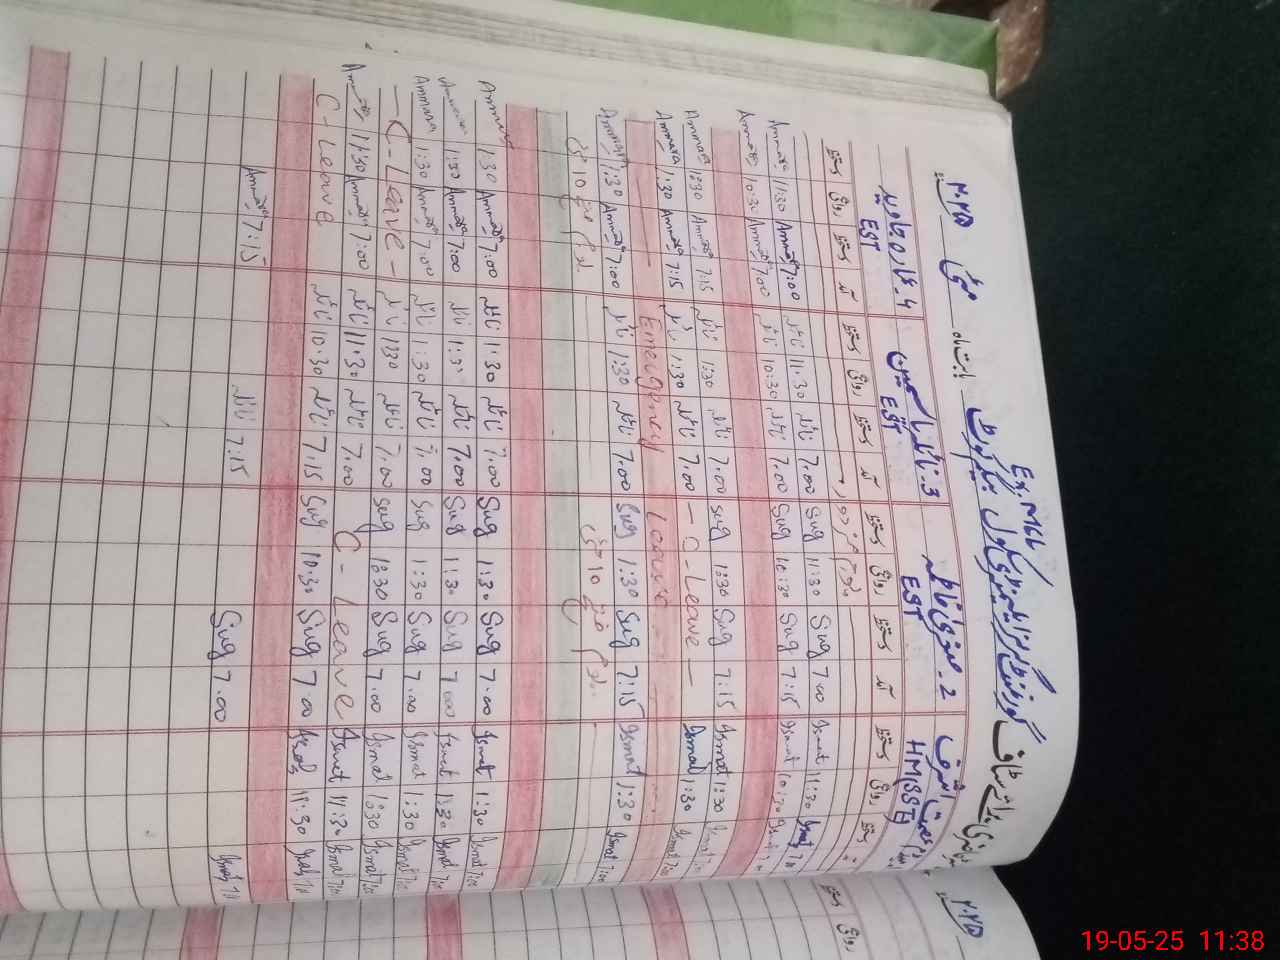 Ex; MCL
گورنمنٹ گرلز ایلیمنٹری سکول بیگم کوٹ بابت ماہ مئی ۲۰۲۵
عصمت اشرف HM(SST) 2۔ صغریٰ فاطمہ EST 3۔ نائلہ یاسمین EST 4۔ عمارہ جاوید EST
دستخط روانگی دستخط آمد دستخط روانگی دستخط آمد دستخط روانگی دستخط آمد دستخط روانگی دستخط
Ammara 11:30 Ammara 7:00 نائلہ 11:30 نائلہ 7:00 Sug 11:30 Sug 7:00 Ismat 11:30 Ismat
Ammara 10:30 Ammara 7:00 نائلہ 10:30 نائلہ 7:00 Sug 10:30 Sug 7:15 Ismat 10:30
Ammara 1:30 Ammara 7:15 نائلہ 1:30 نائلہ 7:00 Sug 1:30 Sug 7:15 Ismat 1:30 Ismat
Ammara 1:30 Ammara 7:15 نائلہ 1:30 نائلہ 7:00 — C-Leave — Ismat 1:30 Ismat 7:00
— Emergency Leave —
Ammara 1:30 Ammara 7:00 نائلہ 1:30 نائلہ 7:00 Sug 1:30 Sug 7:15 Ismat 1:30 Ismat 7:00
10 10
Ammara 1:30 Ammara 7:00 نائلہ 1:30 نائلہ 7:00 Sug 1:30 Sug 7:00 Ismat 1:30 Ismat 7:00
Ammara 1:30 Ammara 7:00 نائلہ 1:30 نائلہ 7:00 Sug 1:30 Sug 7:00 Ismat 1:30 Ismat 7:00
Ammara 1:30 Ammara 7:00 نائلہ 1:30 نائلہ 7:00 Sug 1:30 Sug 7:00 Ismat 1:30 Ismat 7:00
— C-Leave — نائلہ 1:30 نائلہ 7:00 Sug 1:30 Sug 7:00 Ismat 1:30 Ismat 7:00
Ammara 11:30 Ammara 7:00 نائلہ 11:30 نائلہ 7:00 C-Leave Ismat 11:30 Ismat 7:00
C-Leave نائلہ 10:30 نائلہ 7:15 Sug 10:30 Sug 7:00 Ismat
Ammara 7:15 نائلہ 7:15 Sug 7:00 Ismat
۲۰۲۵
روانگی دستخط
19-05-25 11:38